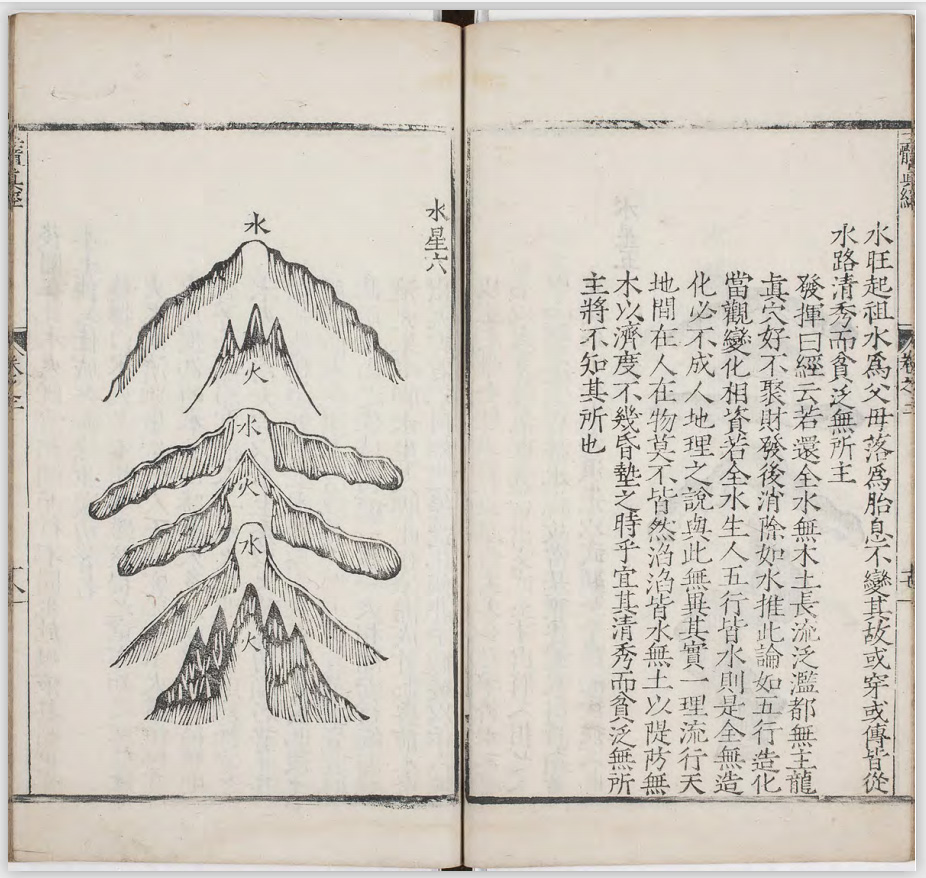 水旺起祖水爲父母落爲胎息不變其故或穿或傳皆從
水路清秀而貧泛無所主
發揮曰經云若還全水無木土長流泛濫都無主龍
真穴好不聚財發後消除如水推此論如五行造化
當觀變化相資若全水生人五行皆水則是全無造
化必不成人地理之說與此無異其實一理流行天
地間在人在物莫不皆然滔滔皆水無土以隄防無
木以濟度不幾昏墊之時乎宜其清秀而貧泛無所
主將不知其所也
水星六
水
火
水
火
水
火